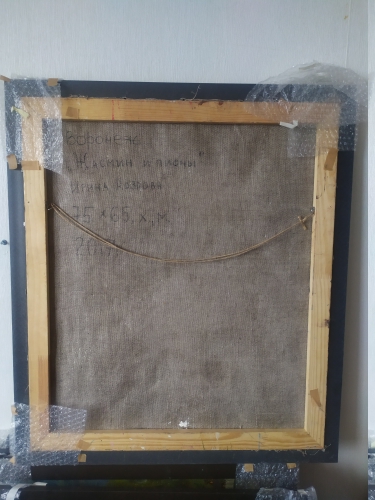 Воронеж
„Жасмин и пионы"
Ирина Козовая
75 × 65, х, м